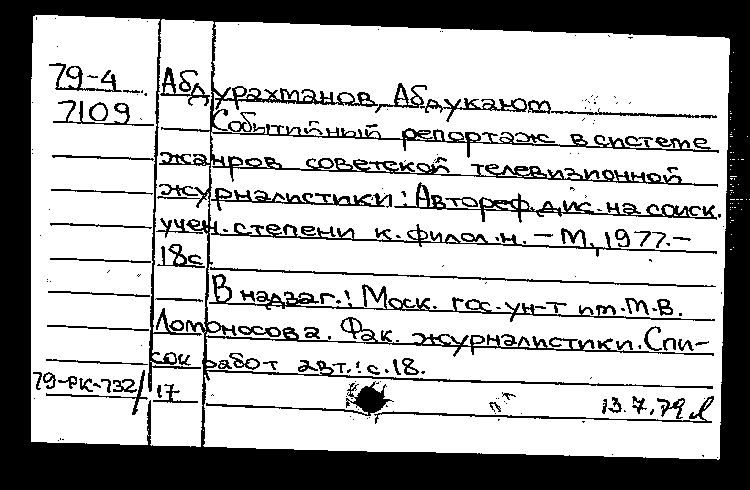 79-4 Абдурахманов, Абдукаюм
7109 Событийный репортаж в системе
жанров советской телевизионной
журналистики: Автореф. дис. на соиск.
учен. степени к. филол. н. — М, 1977. —
18 с.
В надзаг.: Моск. гос. ун-т им. М.В.
Ломоносова. Фак. журналистики. Спи-
сок работ авт.: с. 18.
79-РК-732/17 13.7.79